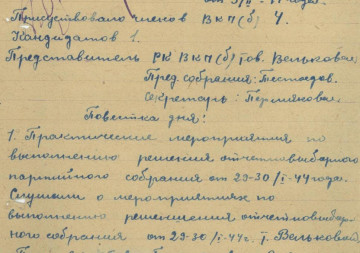 Присутствовало членов ВКП(б) 4.
Кандидатов 1.
Представитель РК ВКП(б) тов. Велькова.
Пред. собрания:
Секретарь: Пермякова.
Повестка дня:
1. Практические мероприятия по
выполнению решения отчетно выборного
партийного собрания от 29-30/I-44 года.
Слушали о мероприятиях по
выполнению решенияения отчетно выбор-
ного собрания от 29-30/I-44 г. т. Вельковой